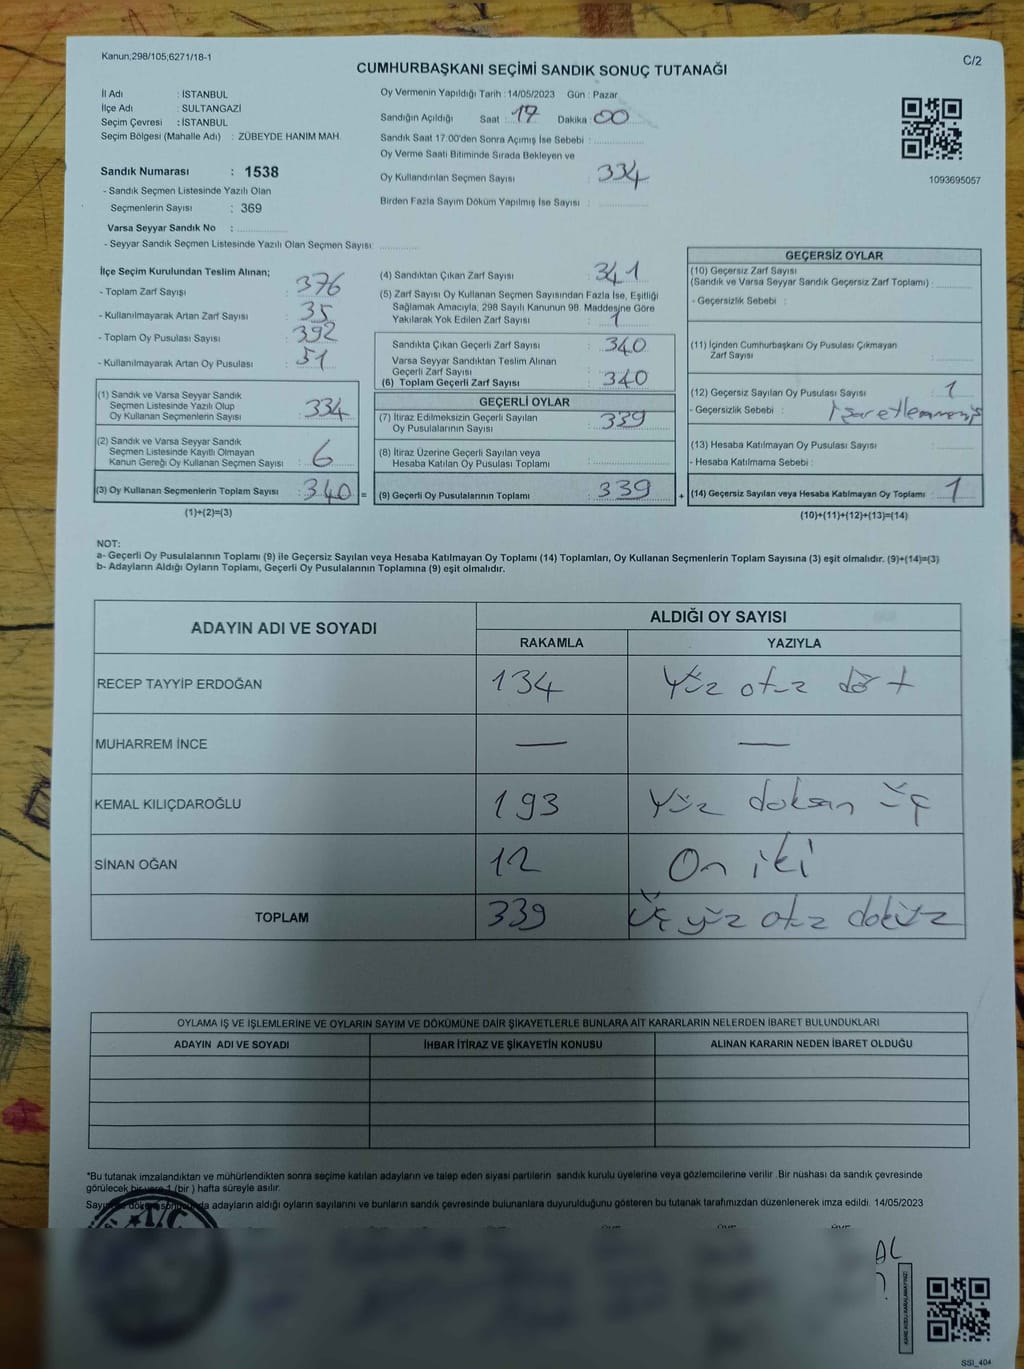 Kanun;298/105;6271/18-1
C/2
CUMHURBAŞKANI SEÇİMİ SANDIK SONUÇ TUTANAĞI
İl Adı : İSTANBUL
İlçe Adı : SULTANGAZİ
Seçim Çevresi : İSTANBUL
Seçim Bölgesi (Mahalle Adı) : ZÜBEYDE HANIM MAH.
Sandık Numarası : 1538
- Sandık Seçmen Listesinde Yazılı Olan
Seçmenlerin Sayısı : 369
Varsa Seyyar Sandık No :
- Seyyar Sandık Seçmen Listesinde Yazılı Olan Seçmen Sayısı:
Oy Vermenin Yapıldığı Tarih : 14/05/2023 Gün : Pazar
Sandığın Açıldığı Saat : 17 Dakika : 00
Sandık Saat 17:00'den Sonra Açımış İse Sebebi :
Oy Verme Saati Bitiminde Sırada Bekleyen ve
Oy Kullandırılan Seçmen Sayısı : 334
Birden Fazla Sayım Döküm Yapılmış İse Sayısı :
1093695057
İlçe Seçim Kurulundan Teslim Alınan;
- Toplam Zarf Sayısı : 376
- Kullanılmayarak Artan Zarf Sayısı : 35
- Toplam Oy Pusulası Sayısı : 392
- Kullanılmayarak Artan Oy Pusulası : 51
(1) Sandık ve Varsa Seyyar Sandık
Seçmen Listesinde Yazılı Olup
Oy Kullanan Seçmenlerin Sayısı : 334
(2) Sandık ve Varsa Seyyar Sandık
Seçmen Listesinde Kayıtlı Olmayan
Kanun Gereği Oy Kullanan Seçmen Sayısı : 6
(3) Oy Kullanan Seçmenlerin Toplam Sayısı : 340 =
(1)+(2)=(3)
(4) Sandıktan Çıkan Zarf Sayısı : 341
(5) Zarf Sayısı Oy Kullanan Seçmen Sayısından Fazla İse, Eşitliği
Sağlamak Amacıyla, 298 Sayılı Kanunun 98. Maddesine Göre
Yakılarak Yok Edilen Zarf Sayısı : 1
Sandıkta Çıkan Geçerli Zarf Sayısı : 340
Varsa Seyyar Sandıktan Teslim Alınan
Geçerli Zarf Sayısı
(6) Toplam Geçerli Zarf Sayısı : 340
GEÇERLİ OYLAR
(7) İtiraz Edilmeksizin Geçerli Sayılan
Oy Pusulalarının Sayısı : 339
(8) İtiraz Üzerine Geçerli Sayılan veya
Hesaba Katılan Oy Pusulası Toplamı :
(9) Geçerli Oy Pusulalarının Toplamı : 339 +
GEÇERSİZ OYLAR
(10) Geçersiz Zarf Sayısı
(Sandık ve Varsa Seyyar Sandık Geçersiz Zarf Toplamı) :
- Geçersizlik Sebebi :
(11) İçinden Cumhurbaşkanı Oy Pusulası Çıkmayan
Zarf Sayısı :
(12) Geçersiz Sayılan Oy Pusulası Sayısı : 1
- Geçersizlik Sebebi : İşaretlenmemiş
(13) Hesaba Katılmayan Oy Pusulası Sayısı :
- Hesaba Katılmama Sebebi :
(14) Geçersiz Sayılan veya Hesaba Katılmayan Oy Toplamı : 1
(10)+(11)+(12)+(13)=(14)
NOT:
a- Geçerli Oy Pusulalarının Toplamı (9) ile Geçersiz Sayılan veya Hesaba Katılmayan Oy Toplamı (14) Toplamları, Oy Kullanan Seçmenlerin Toplam Sayısına (3) eşit olmalıdır. (9)+(14)=(3)
b- Adayların Aldığı Oyların Toplamı, Geçerli Oy Pusulalarının Toplamına (9) eşit olmalıdır.
ADAYIN ADI VE SOYADI ALDIĞI OY SAYISI
RAKAMLA YAZIYLA
RECEP TAYYİP ERDOĞAN 134 Yüz otuz dört
MUHARREM İNCE — —
KEMAL KILIÇDAROĞLU 193 Yüz doksan üç
SİNAN OĞAN 12 On iki
TOPLAM 339 Üç yüz otuz dokuz
OYLAMA İŞ VE İŞLEMLERİNE VE OYLARIN SAYIM VE DÖKÜMÜNE DAİR ŞİKAYETLERLE BUNLARA AİT KARARLARIN NELERDEN İBARET BULUNDUKLARI
ADAYIN ADI VE SOYADI İHBAR İTİRAZ VE ŞİKAYETİN KONUSU ALINAN KARARIN NEDEN İBARET OLDUĞU
*Bu tutanak imzalandıktan ve mühürlendikten sonra seçime katılan adayların ve talep eden siyasi partilerin sandık kurulu üyelerine veya gözlemcilerine verilir. Bir nüshası da sandık çevresinde
görülecek bir yere 1 (bir) hafta süreyle asılır.
adayların aldığı oyların sayılarını ve bunların sandık çevresinde bulunanlara duyurulduğunu gösteren bu tutanak tarafımızdan düzenlenerek imza edildi. 14/05/2023
T.C
AL
KARE KODU KARALAMAYINIZ!
SSI_404